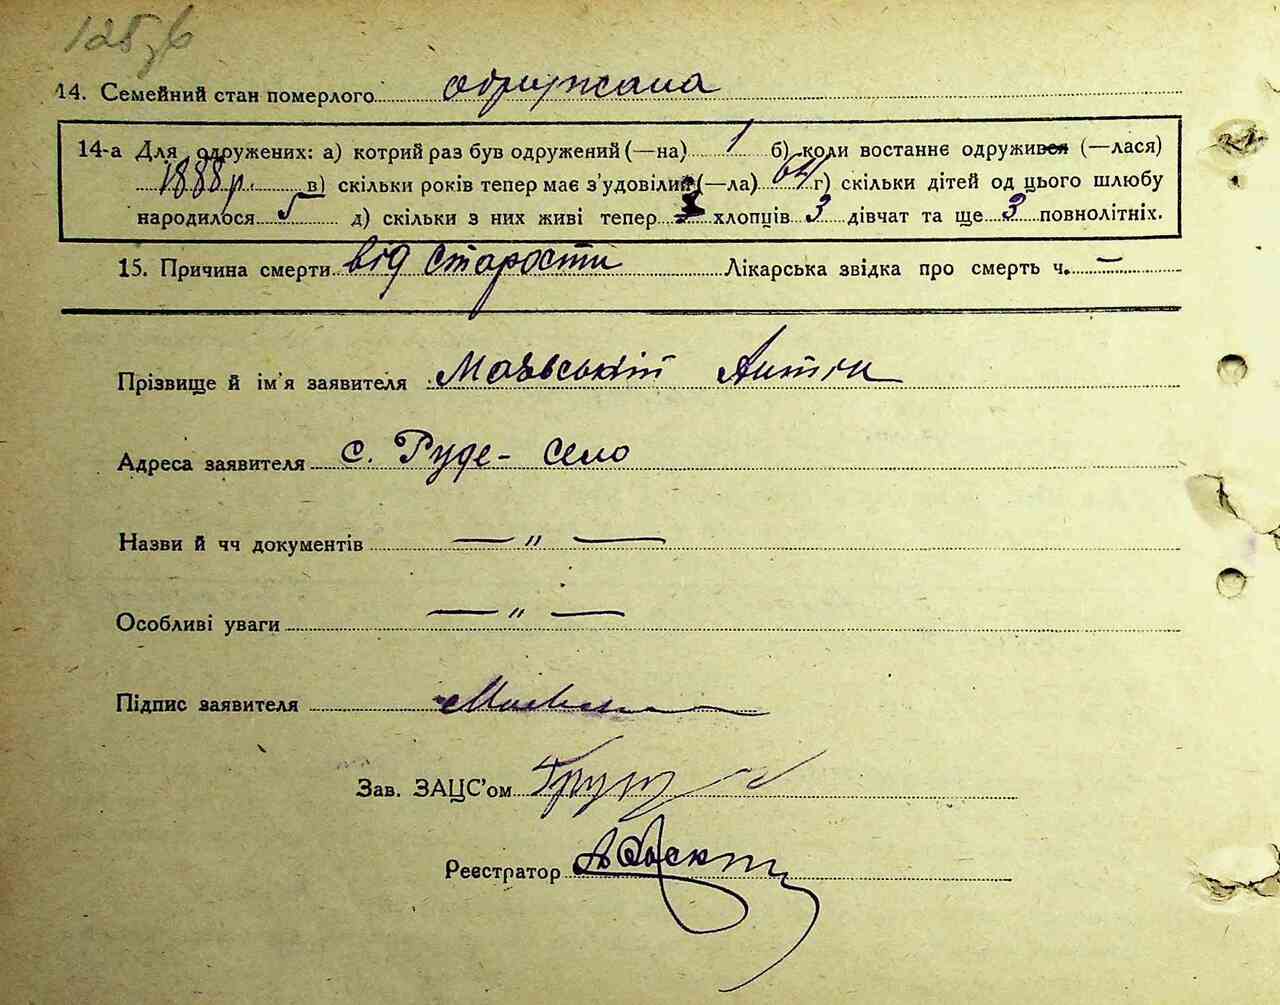 125зв
14. Семейний стан померлого одружана
14-а Для одружених: а) котрий раз був одружений (—на) 1 б) коли востаннє одружився (—лася)
1888 р. в) скільки років тепер має з'удовілий (—ла) 64 г) скільки дітей од цього шлюбу
народилося 5 д) скільки з них живі тепер хлопців 3 дівчат та ще 3 повнолітніх.
15. Причина смерти від старости Лікарська звідка про смерть ч. —
Прізвище й ім'я заявителя Маявській Антін
Адреса заявителя с. Руде - село
Назви й чч документів — " —
Особливі уваги — " —
Підпис заявителя
Зав. ЗАЦС'ом
Реєстратор